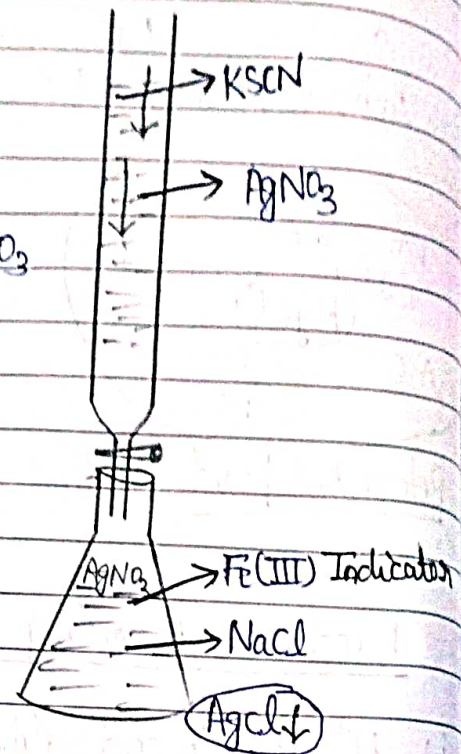 KSCN
AgNO₃
O₃
AgNO₃
Fe(III) Indicator
NaCl
AgCl↓